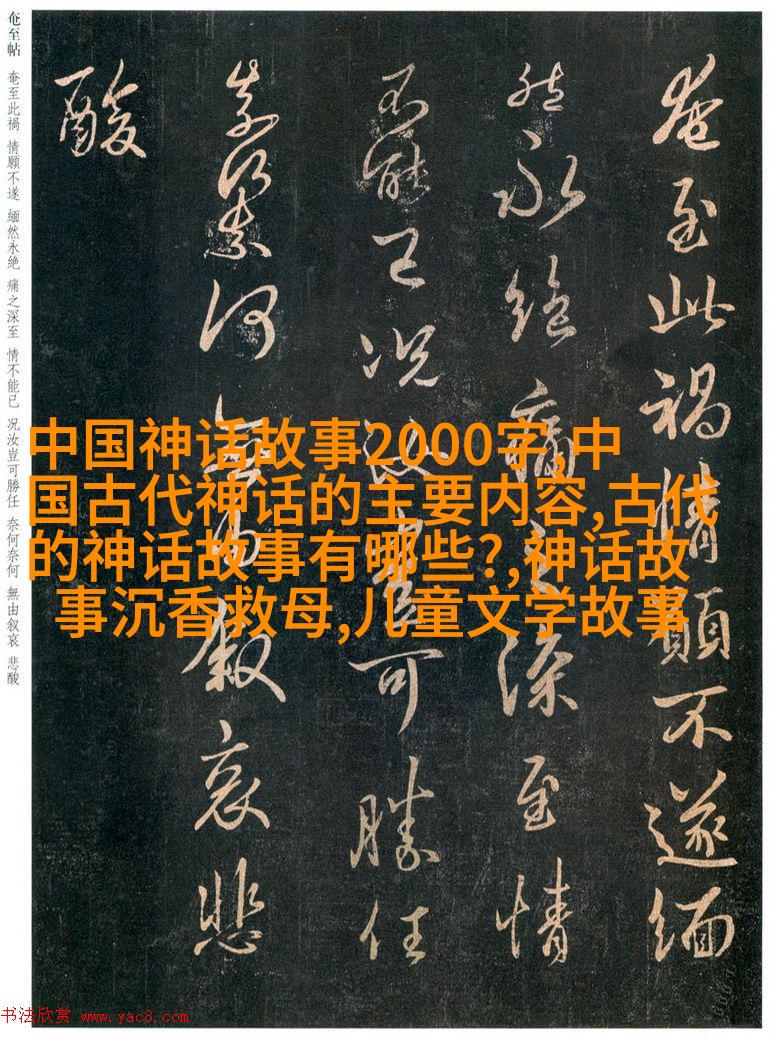 奄至此禍情願不遂緬
然永絶痛之深至情
不能已况汝豈可勝任
奈何奈何無由叙哀悲
酸
奄至帖 奄至此禍 情願不遂 緬然永絶 痛之深至 情不能已 况汝豈可勝任 奈何奈何 無由叙哀 悲酸
中国神话故事2000字,中
国古代神话的主要内容,古代
的神话故事有哪些?,神话故
事沉香救母,儿童文学故事
书法欣赏 www.yac8.com